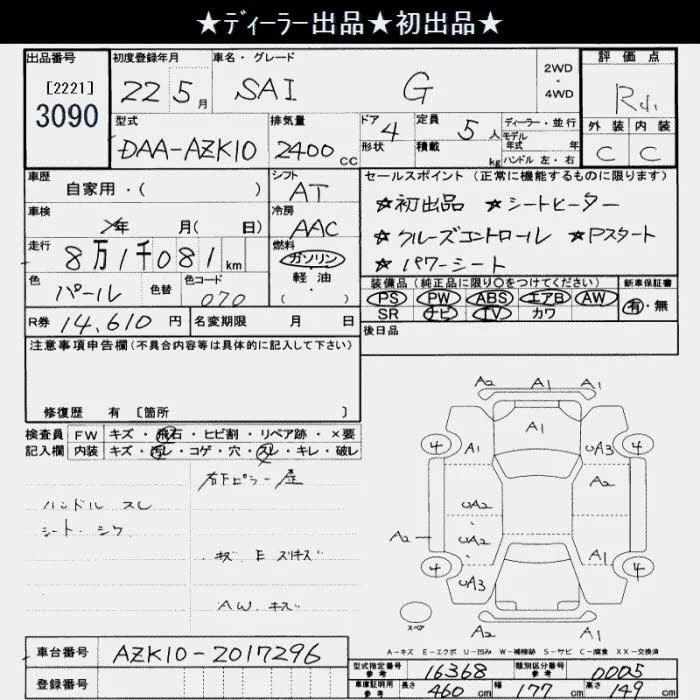 ★ディーラー出品★初出品★
出品番号 初度登録年月 車名・グレード 2WD・4WD 評価点
[2221]
3090
22年 5月 SAI G
外装 内装
C C
型式 排気量 ドア 定員 ディーラー・並行
DAA-AZK10 2400cc 4 5人 モデル年式 年
形状 積載 kg ハンドル 左・右
車歴 自家用・( ) シフト AT
セールスポイント (正常に機能するものに限ります)
★初出品 ★シートヒーター
★クルーズコントロール ★Pスタート
★パワーシート
車検 年 月( 日) 冷房 AAC
走行 8万1千081km 燃料 ガソリン
軽油
( ・ )
色 パール 色替 色コード 070
装備品 (純正品に限り〇をつけてください) 新車保証書
PS PW ABS エアB AW 有・無
SR ナビ TV カワ
R券 14,610円 名変期限 月 日
後日品
注意事項申告欄(不具合内容等は具体的に記入して下さい)
修復歴 有 〔箇所 〕
検査員 FW キズ・飛石・ヒビ割・リペア跡・×要
記入欄 内装 キズ・汚レ・コゲ・穴・スレ・キレ・破レ
ハンドル スレ
シート・シワ
キズ E スリキズ
AW. キズ
A2 A1 A1
4 A1 A1 UA3 4
UA2 A2
A2 UA2
4 UA3 A1 4
A2 A1 A1
スペア
A-キズ E-エクボ U-凹み W-補修跡 S-サビ C-腐食 XX-交換済
車台番号 AZK10-2017296
登録番号
型式指定番号 参考 16368 類別区分番号 参考 0005
車庫証明用 参考 長さ 460cm 幅 177cm 高さ 149cm